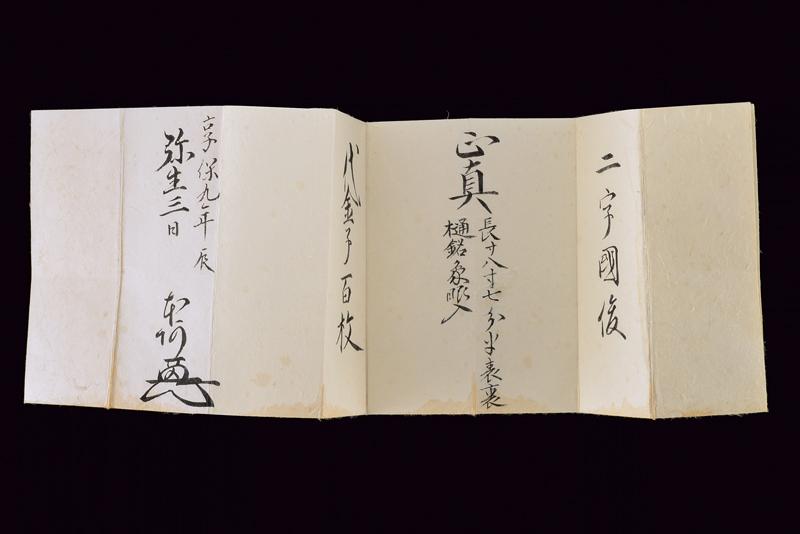 二字國俊
正真
長廿八寸七分半表裏
樋銘象眼入
代金子百枚
享保九年 辰
弥生三日
本阿